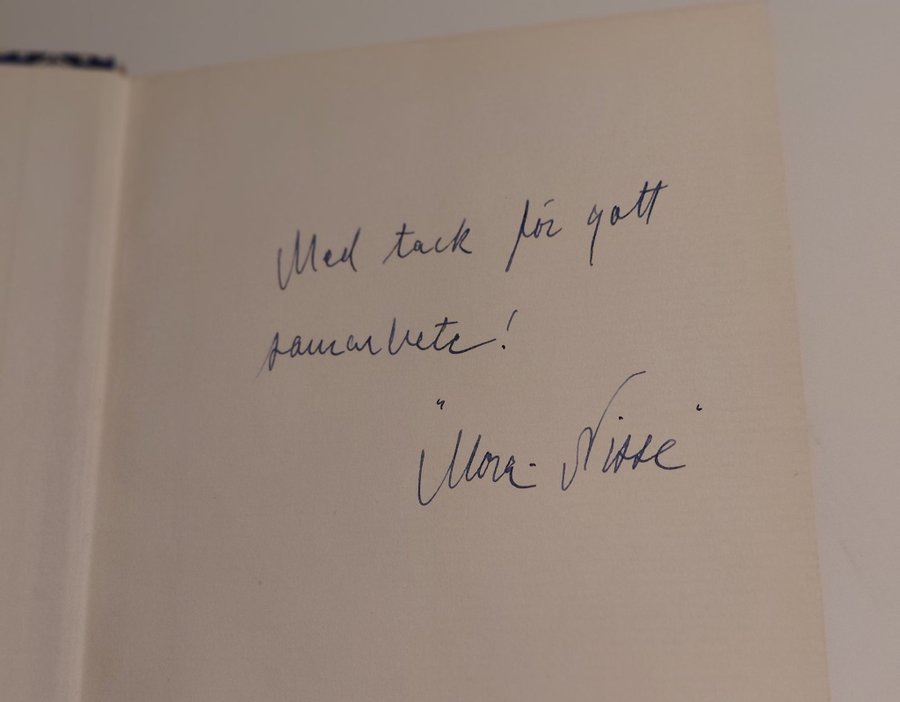 Med tack för gott
samarbete!
"Mora-Nisse"